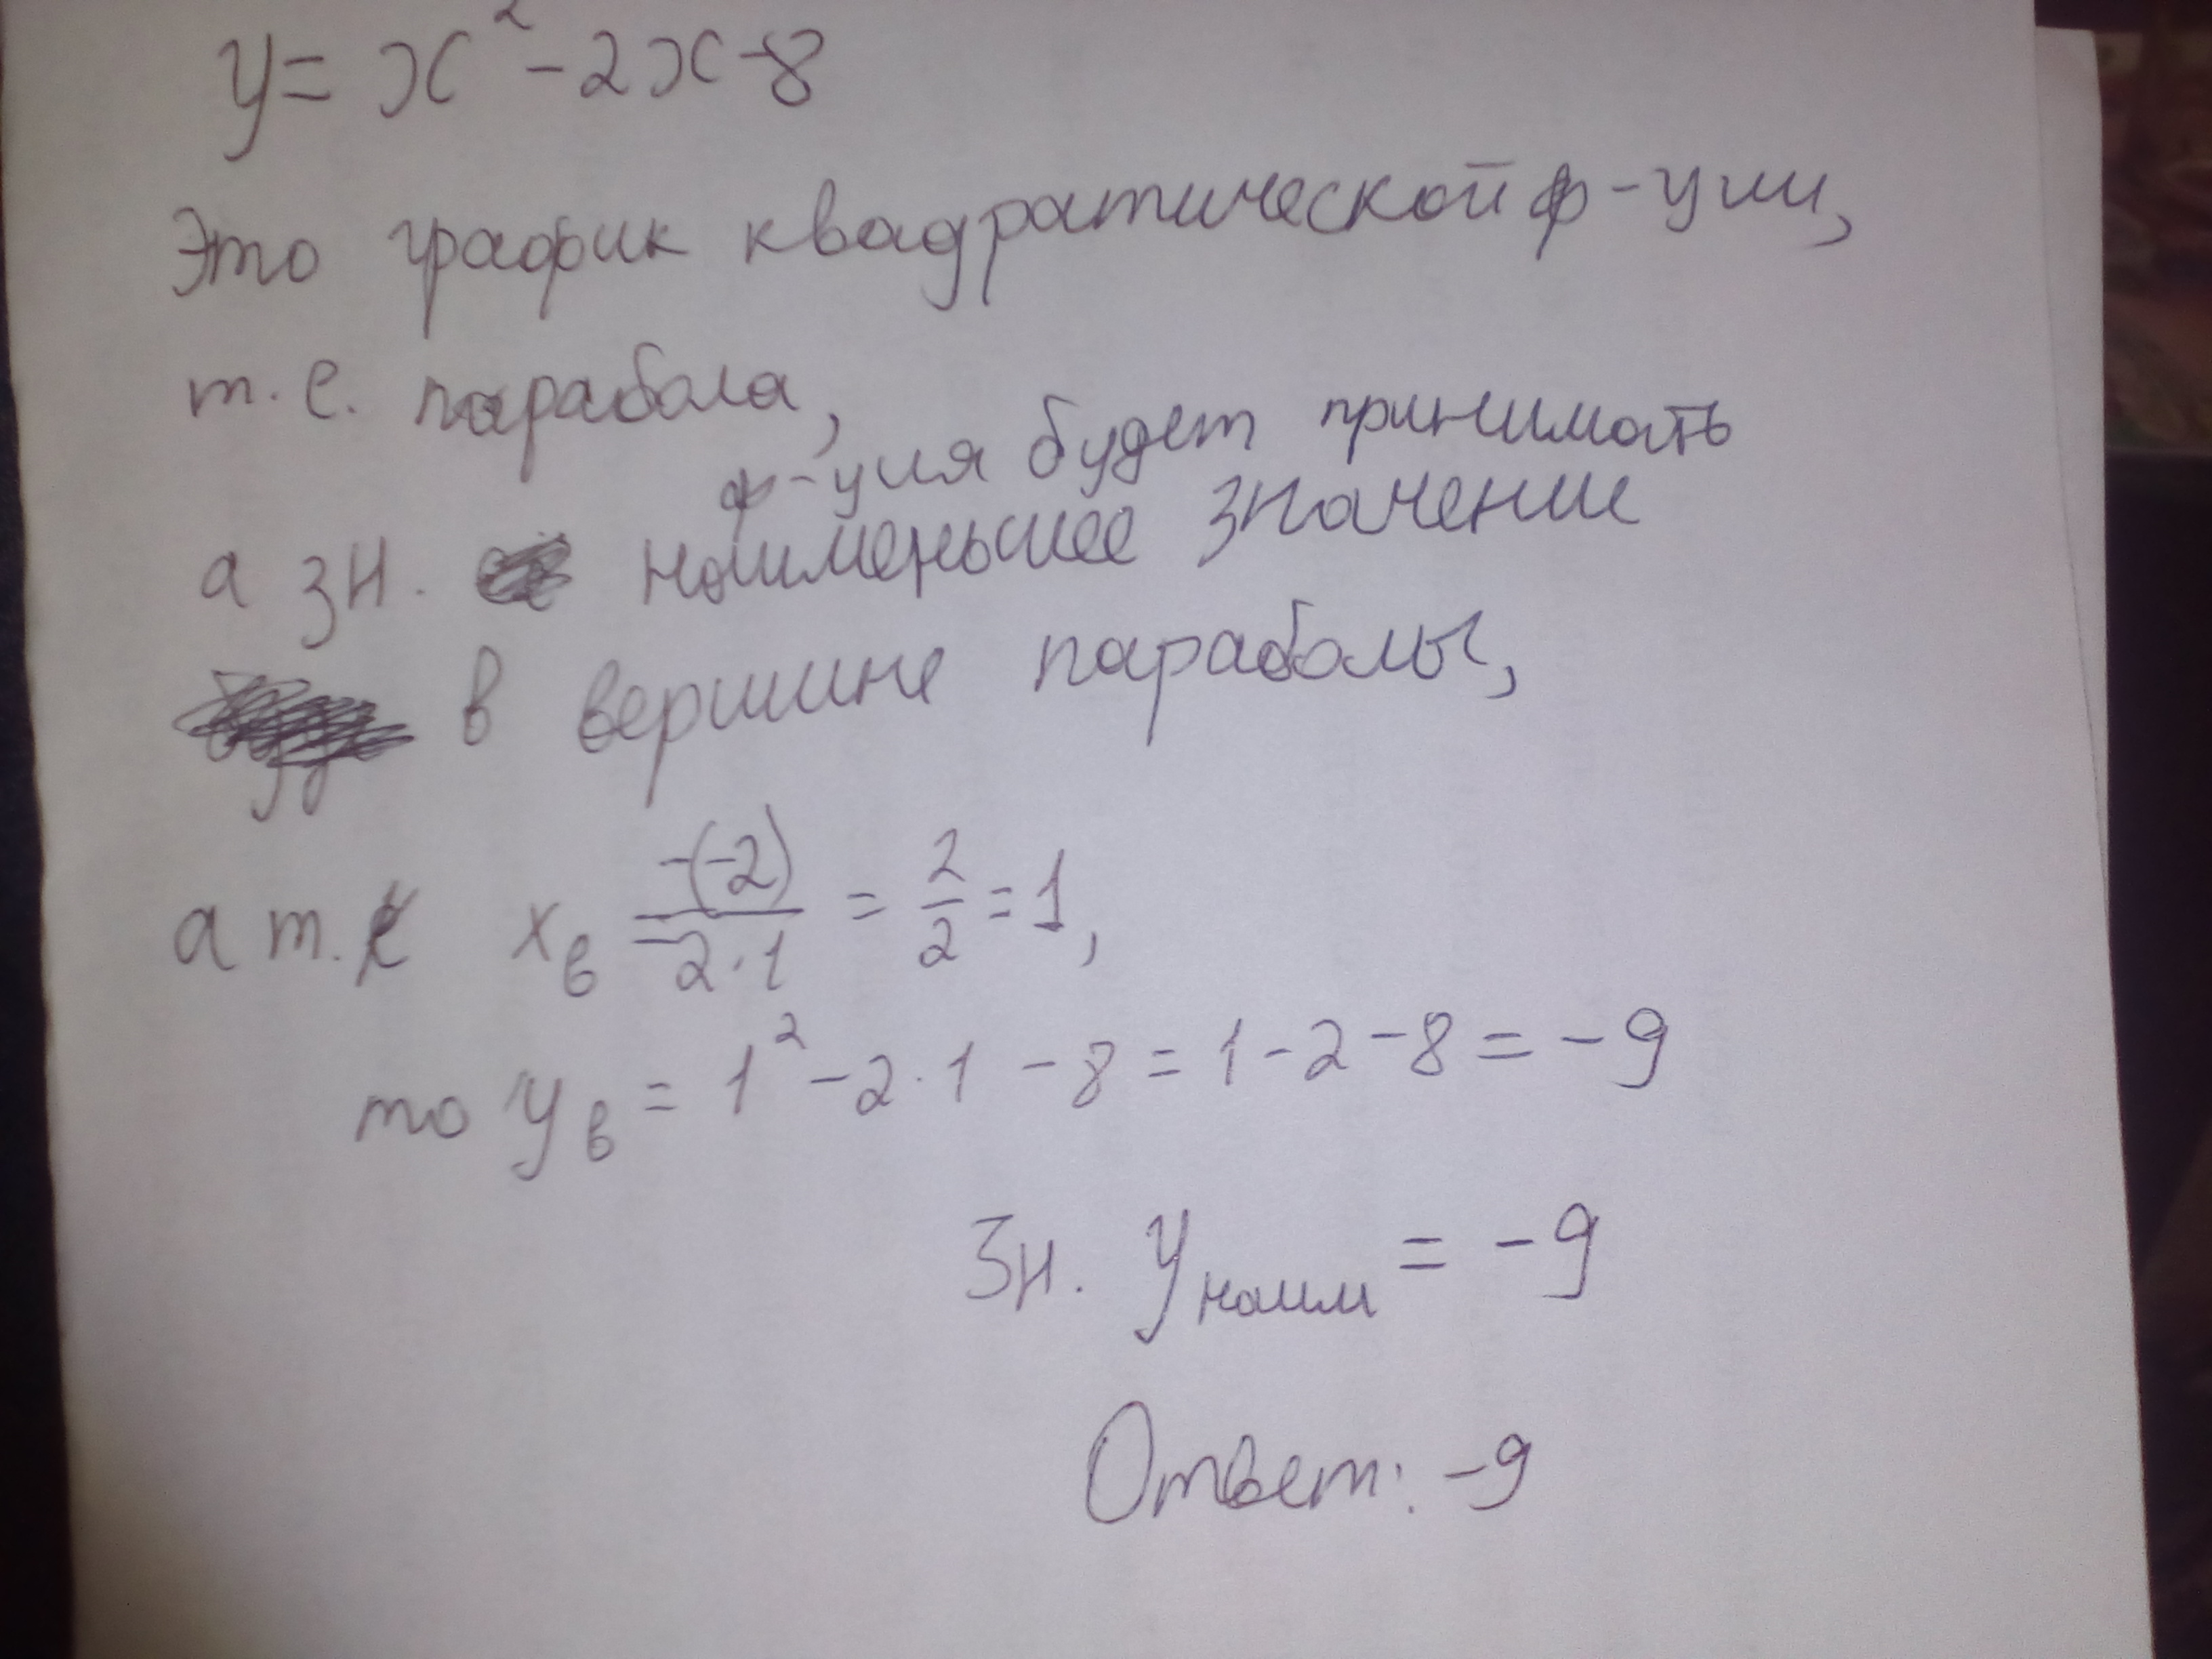 y = x² - 2x - 8
Это график квадратической ф-ции,
т.е. парабола,
ф-ция будет принимать
а зн. наименьшее значение
в вершине параболы,
а т.к x_в = -(-2)/2·1 = 2/2 = 1,
то y_в = 1² - 2·1 - 8 = 1 - 2 - 8 = -9
Зн. y_наим = -9
Ответ: -9